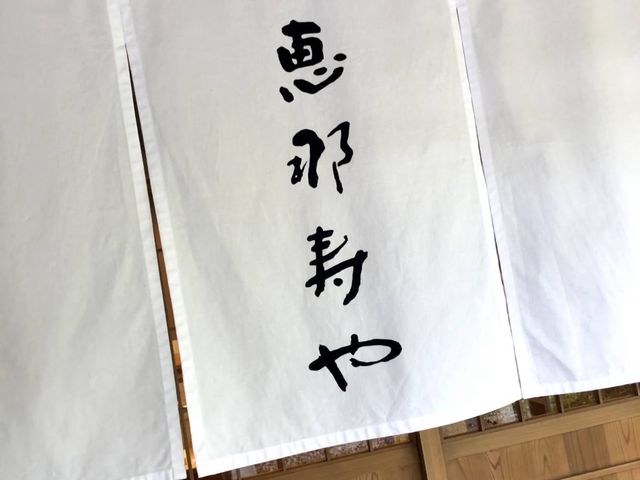 恵那寿や